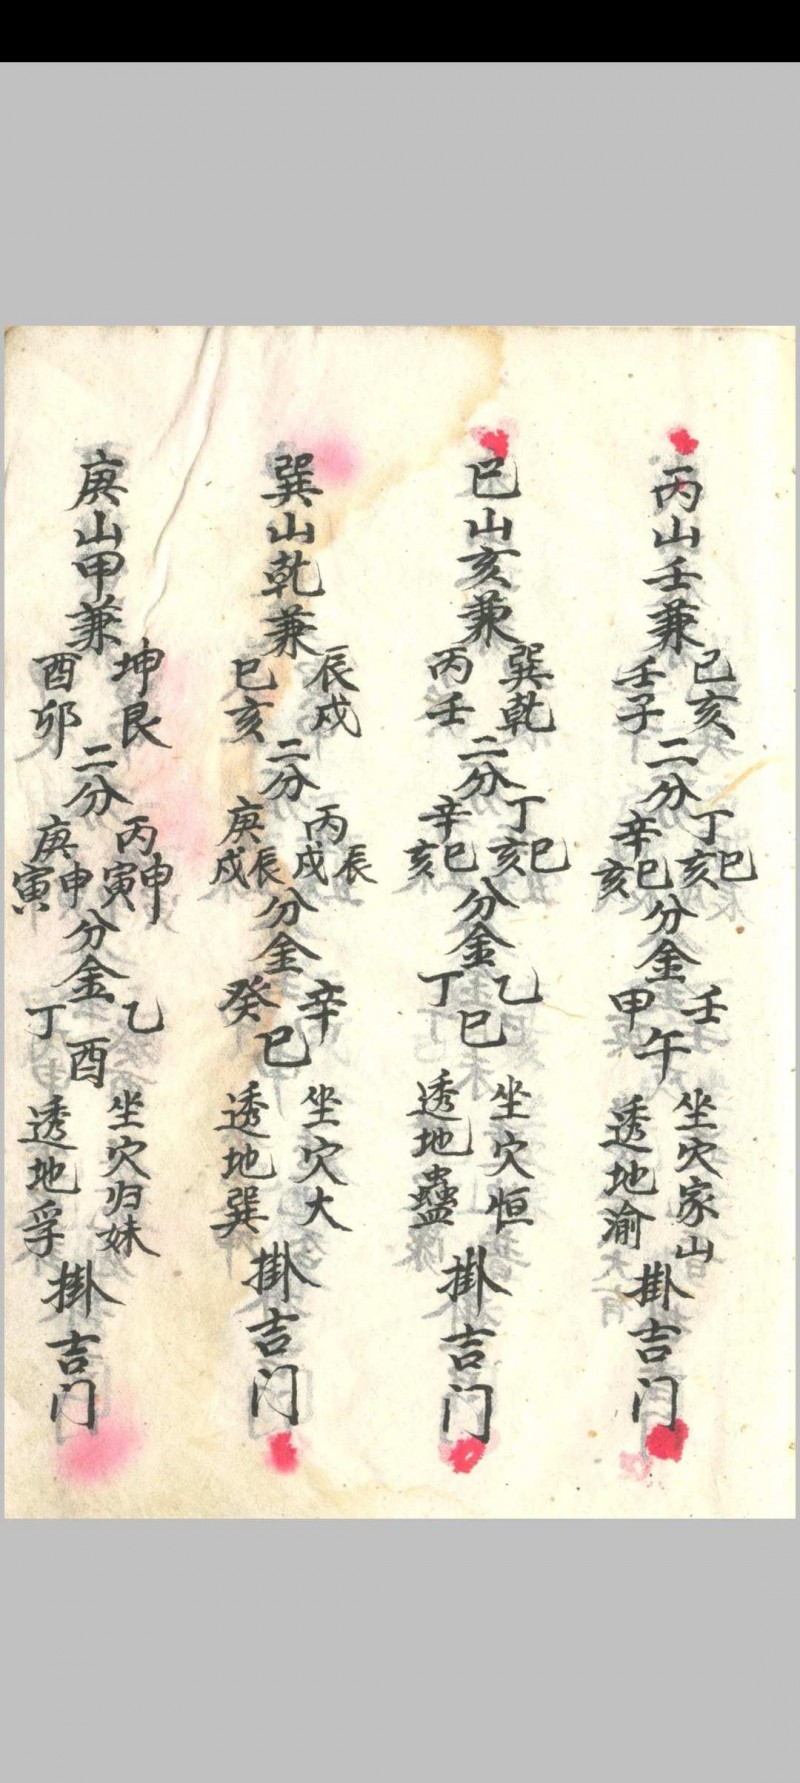 丙山壬兼己亥壬子二分丁亥巳辛亥巳分金壬甲午坐穴家山透地渝掛吉门
巳山亥兼巽乾丙壬二分丁亥巳辛亥巳分金乙丁巳坐穴恒透地蠱掛吉门
巽山乾兼辰戍巳亥二分丙戍辰庚戍辰分金辛癸巳坐穴大透地巽掛吉门
庚山甲兼坤艮酉卯二分丙寅申庚寅申分金乙丁酉坐穴归妹透地孚掛吉门